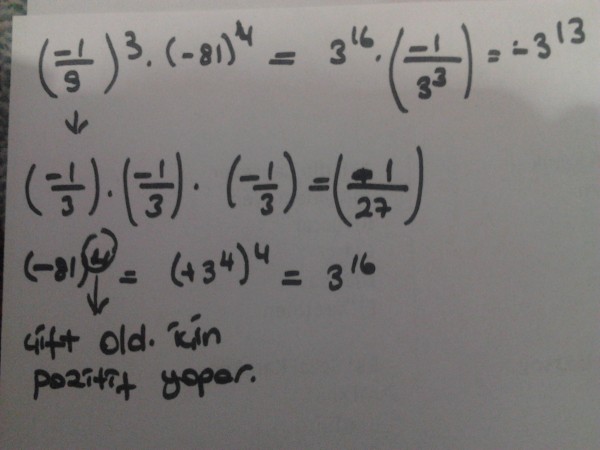 (-1/9)^3 . (-81)^4 = 3^16 . (-1/3^3) = -3^13
↓
(-1/3) . (-1/3) . (-1/3) = (-1/27)
(-81)^4 = (+3^4)^4 = 3^16
↓
çift old. için
pozitif yapar.